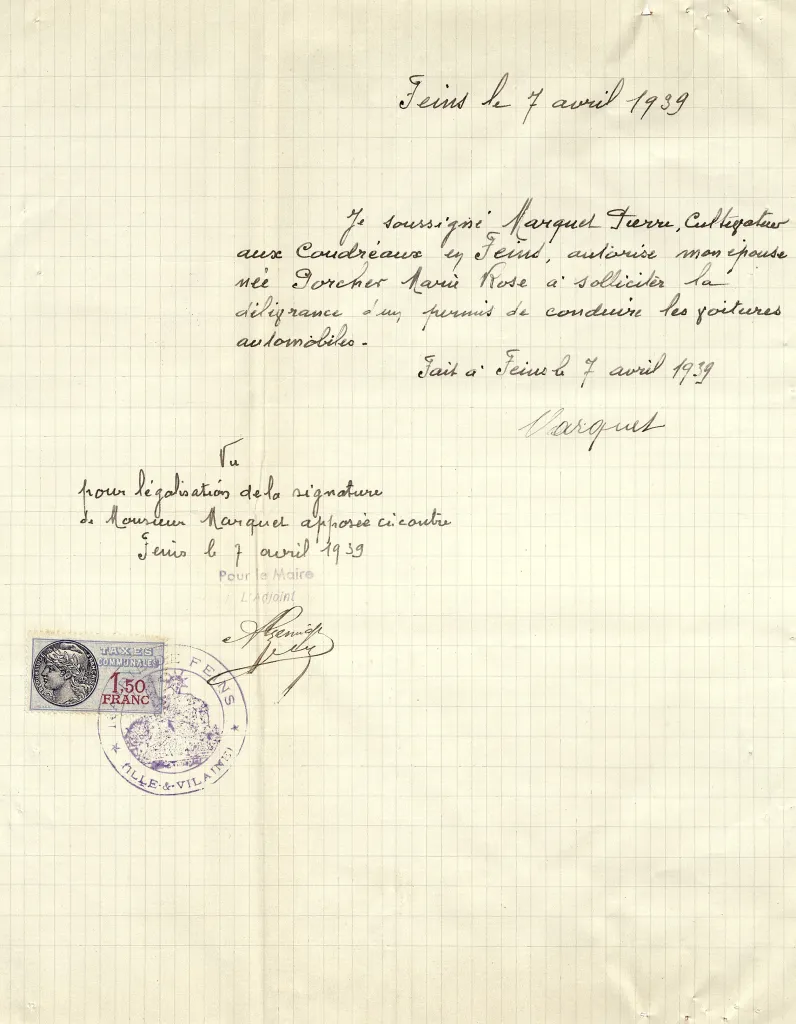 Feins le 7 avril 1939
Je soussigné Marquet Pierre, Cultivateur
aux Coudréaux en Feins, autorise mon épouse
née Porcher Marie Rose à solliciter la
délivrance d'un permis de conduire les voitures
automobiles.
Fait à Feins le 7 avril 1939
Marquet
Vu
pour légalisation de la signature
de Monsieur Marquet apposée ci contre
Feins le 7 avril 1939
Pour le Maire
L'Adjoint
TAXES
COMMUNALES
1,50
FRANC
DE FEINS
(ILLE-&-VILAINE)